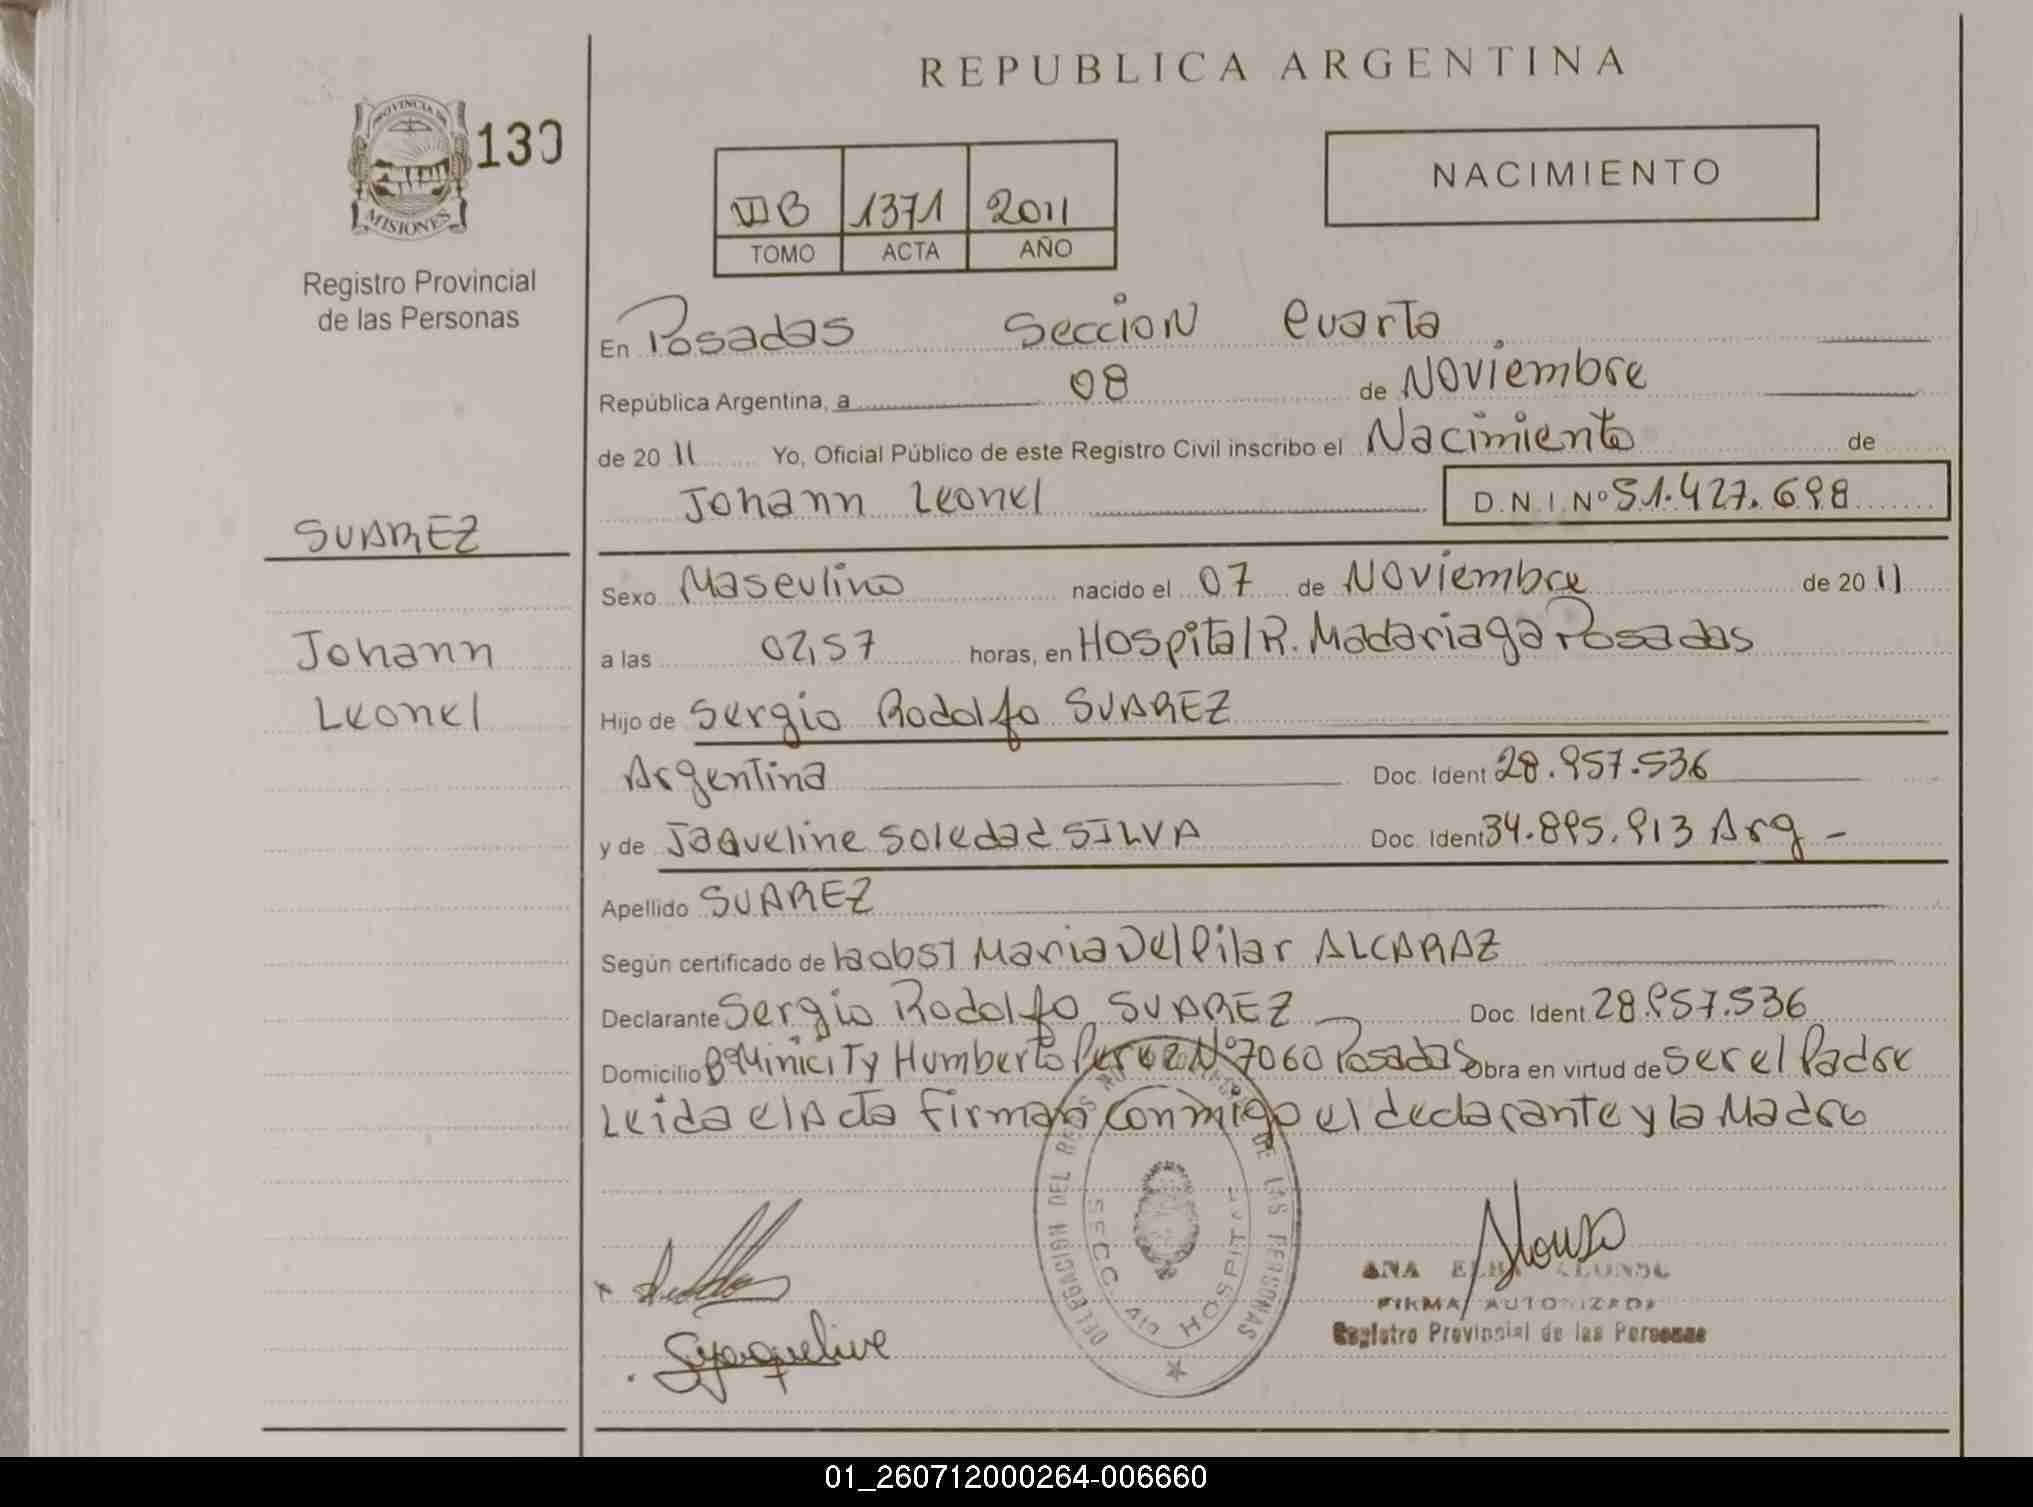 REPUBLICA ARGENTINA
PROVINCIA DE
MISIONES
130
Registro Provincial
de las Personas
VII B 1371 2011
TOMO ACTA AÑO
NACIMIENTO
En Posadas Seccion Cuarta
República Argentina, a 08 de Noviembre
de 2011 Yo, Oficial Público de este Registro Civil inscribo el Nacimiento de
Johann Leonel D.N.I. Nº 51.427.698
SUAREZ
Johann
Leonel
Sexo Masculino nacido el 07 de Noviembre de 2011
a las 02,57 horas, en Hospital R. Madariaga Posadas
Hijo de Sergio Rodolfo SUAREZ
Argentina Doc. Ident 28.957.536
y de Jaqueline Soledad SILVA Doc. Ident 34.895.913 Arg -
Apellido SUAREZ
Según certificado de la obst Maria Del Pilar ALCARAZ
Declarante Sergio Rodolfo SUAREZ Doc. Ident 28.957.536
Domicilio Bº Minicity Humberto Perez Nº 7060 Posadas Obra en virtud de ser el Padre
Leida el Acta Firman conmigo el declarante y la Madre
DELEGACION DEL DE LAS PERSONAS
SECC. HOSPITAL
Alonso
ANA ELBA ALONSO
FIRMA AUTORIZADA
Registro Provincial de las Personas
Jaqueline
01_260712000264-006660